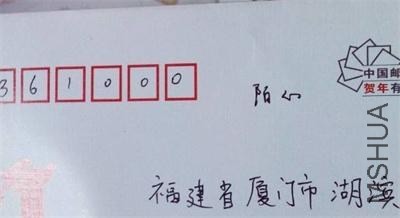 361000
陌心
中国邮
贺年有
福建省厦门市湖滨